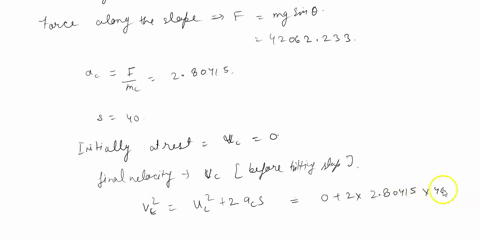 Force along the slope ⇒ F = mg Sinθ
= 42062.233
a_c = F/m_c = 2.80415.
s = 40.
Initially at rest = u_c = 0
final velocity → v_c [before hitting slop].
v_c² = u_c² + 2 a_c s = 0 + 2 x 2.80415 x 40